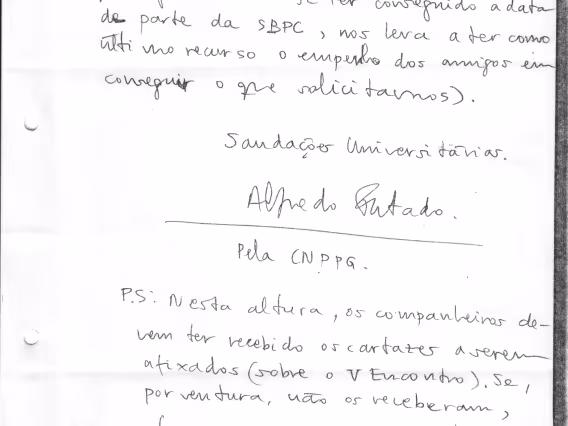 se ter conseguido a data
de parte da SBPC, nos leva a ter como
último recurso o empenho dos amigos em
conseguir o que solicitamos).
Saudações Universitárias.
Alfredo Furtado.
Pela CNPPG.
P.S: Nesta altura, os companheiros de-
vem ter recebido os cartazes a serem
afixados (sobre o V Encontro). Se,
porventura, não os receberam,